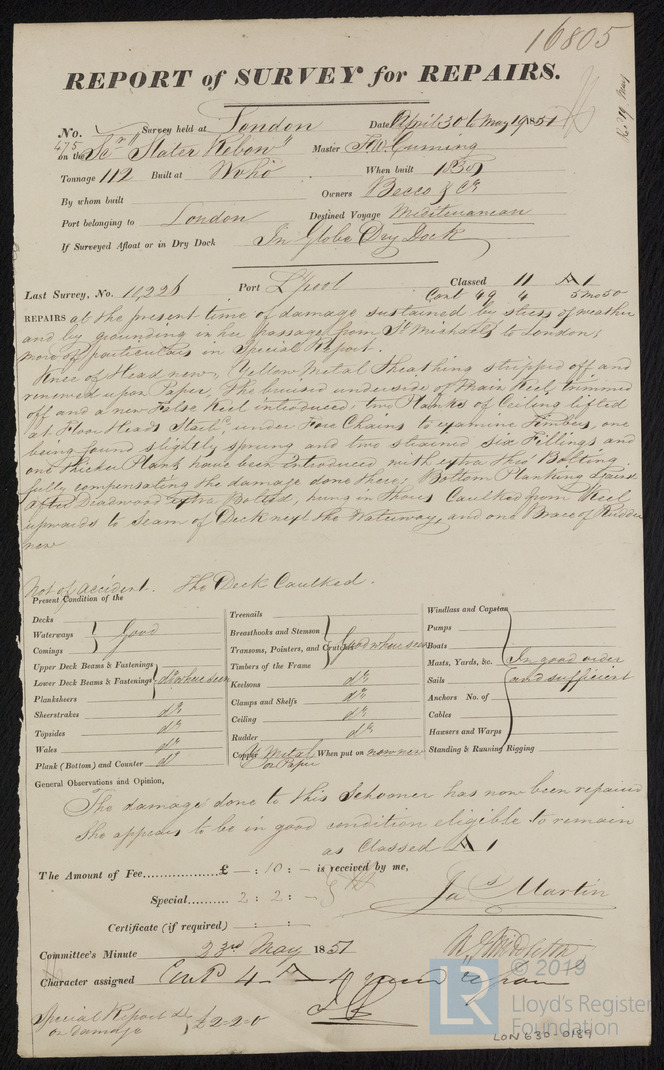 16805
REPORT of SURVEY for REPAIRS.
No. 475 Survey held at London Date April 30 to May 19 1851
on the Scr "Slater Rebow" Master J.W. Cuming
Tonnage 112 Built at Wvho When built 1835
By whom built Owners Becco & Co
Port belonging to London Destined Voyage Mediteranean
If Surveyed Afloat or in Dry Dock In Globe Dry Dock
Last Survey, No. 10,226 Port L'pool Classed 11 A 1
Cont 49 4 5 mo 50
REPAIRS at the present time of damage sustained by stress of weather
and by grounding in her passage from St Michaels to London;
more of particulars in Special Report.
Knee of Head new, Yellow Metal Sheathing stripped off and
renewed upon Paper, The bruised underside of Main Keel, trimmed
off and a new False Keel introduced, two Planks of Ceiling lifted
at Floor Heads Starbd. under Fore Chains to examine Timbers, one
being found slightly sprung and two strained six Fillings and
one thicker Plank have been Introduced with extra thro' Bolting
fully compensating the damage done there; Bottom Planking
After Deadwood Extra Bolted, hung in thours Caulked from Keel
upwards to Seam of Deck next the Waterway, and one Brace of Rudder
new
Not of Accident. The Deck Caulked.
Present Condition of the
Decks
Waterways
Comings
Good
Upper Deck Beams & Fastenings
Lower Deck Beams & Fastenings
do where seen
Planksheers
Sheerstrakes do
Topsides do
Wales do
Plank (Bottom) and Counter do
Treenails
Breasthooks and Stemson
Transoms, Pointers, and Crutches
Timbers of the Frame
Good where seen
Keelsons do
Clamps and Shelfs do
Ceiling do
Rudder do
Copper Y Metal on Paper When put on now new
Windlass and Capstan
Pumps
Boats
Masts, Yards, &c.
Sails
Anchors No. of
Cables
Hawsers and Warps
In good order
and sufficient
Standing & Running Rigging
General Observations and Opinion,
The damage done to this Schooner has now been repaired
She appears to be in good condition eligible to remain
as Classed A 1
The Amount of Fee £ — : 10 : — is received by me,
Special 2 : 2 : —
Jas Martin
Certificate (if required) — : — : —
Committee's Minute 23rd May 1851
Character assigned Contd 4 A
Special Report
on damage } £2-2-0
© 2019
LR Lloyd's Register
Foundation
LON 630-0189